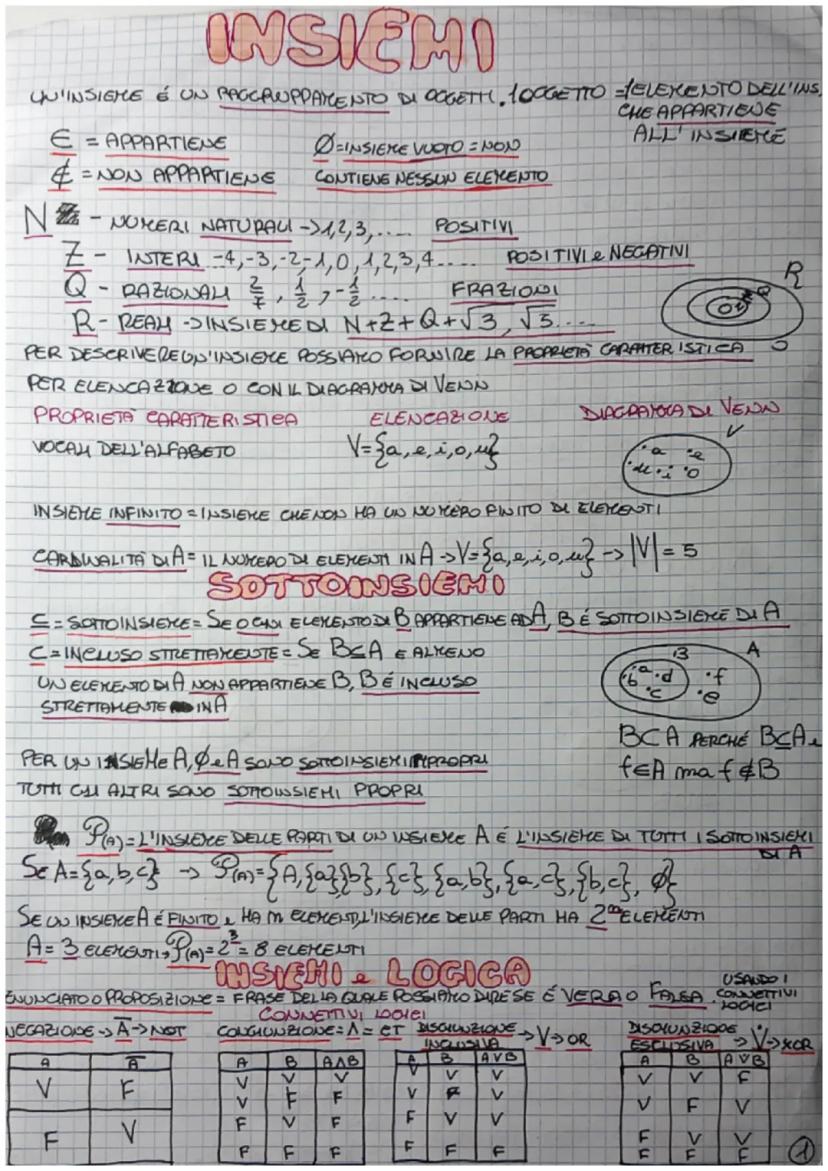 INSIEMI
UN'INSIEME É UN RAGGRUPPAMENTO DI OGGETTI. 1 OGGETTO = 1 ELEMENTO DELL'INS.
CHE APPARTIENE
ALL'INSIEME
∈ = APPARTIENE Ø = INSIEME VUOTO = NON
∉ = NON APPARTIENE CONTIENE NESSUN ELEMENTO
N - NUMERI NATURALI -> 1,2,3,.... POSITIVI
Z - INTERI -4,-3,-2-1,0,1,2,3,4.... POSITIVI e NEGATIVI
Q - RAZIONALI 2/7, 1/2, -1/2.... FRAZIONI
R
R - REALI -> INSIEME DI N+Z+Q+√3, √5....
PER DESCRIVERE UN'INSIEME POSSIAMO FORNIRE LA PROPRIETÀ CARATTERISTICA O
PER ELENCAZIONE O CON IL DIAGRAMMA DI VENN
PROPRIETÀ CARATTERISTICA ELENCAZIONE DIAGRAMMA DI VENN
VOCALI DELL'ALFABETO V={a,e,i,o,u} V
a e
u i o
INSIEME INFINITO = INSIEME CHE NON HA UN NUMERO FINITO DI ELEMENTI
CARDINALITÀ DI A = IL NUMERO DI ELEMENTI IN A -> V={a,e,i,o,u} -> |V| = 5
SOTTOINSIEMI
⊆ = SOTTOINSIEME = SE OGNI ELEMENTO DI B APPARTIENE AD A, B É SOTTOINSIEME DI A
⊂ = INCLUSO STRETTAMENTE = SE B⊆A E ALMENO
UN ELEMENTO DI A NON APPARTIENE B, B É INCLUSO
STRETTAMENTE IN A
B A
a b d c f e
B⊂A PERCHÉ B⊆A e
f∈A ma f∉B
PER UN INSIEME A, Ø e A SONO SOTTOINSIEMI IMPROPRI
TUTTI GLI ALTRI SONO SOTTOINSIEMI PROPRI
P(A) = L'INSIEME DELLE PARTI DI UN INSIEME A É L'INSIEME DI TUTTI I SOTTOINSIEMI
DI A
SE A={a,b,c} -> P(A)={A,{a}{b},{c},{a,b},{a,c},{b,c}, Ø}
SE UN INSIEME A É FINITO e HA m ELEMENTI, L'INSIEME DELLE PARTI HA 2ᵐ ELEMENTI
A = 3 ELEMENTI, P(A) = 2³ = 8 ELEMENTI
INSIEMI e LOGICA
ENUNCIATO O PROPOSIZIONE = FRASE DELLA QUALE POSSIAMO DIRE SE É VERA O FALSA. USANDO I CONNETTIVI LOGICI
CONNETTIVI LOGICI
NEGAZIONE -> A̅ -> NOT CONGIUNZIONE = Λ = ET DISGIUNZIONE INCLUSIVA -> V -> OR DISGIUNZIONE ESCLUSIVA -> V̇ -> XOR
A A̅ A B AΛB A B AVB A B AV̇B
V F V V V V V V V V F
V F F V F V V F V
F V F V F F V V F V V
F F F F F F F F F
1